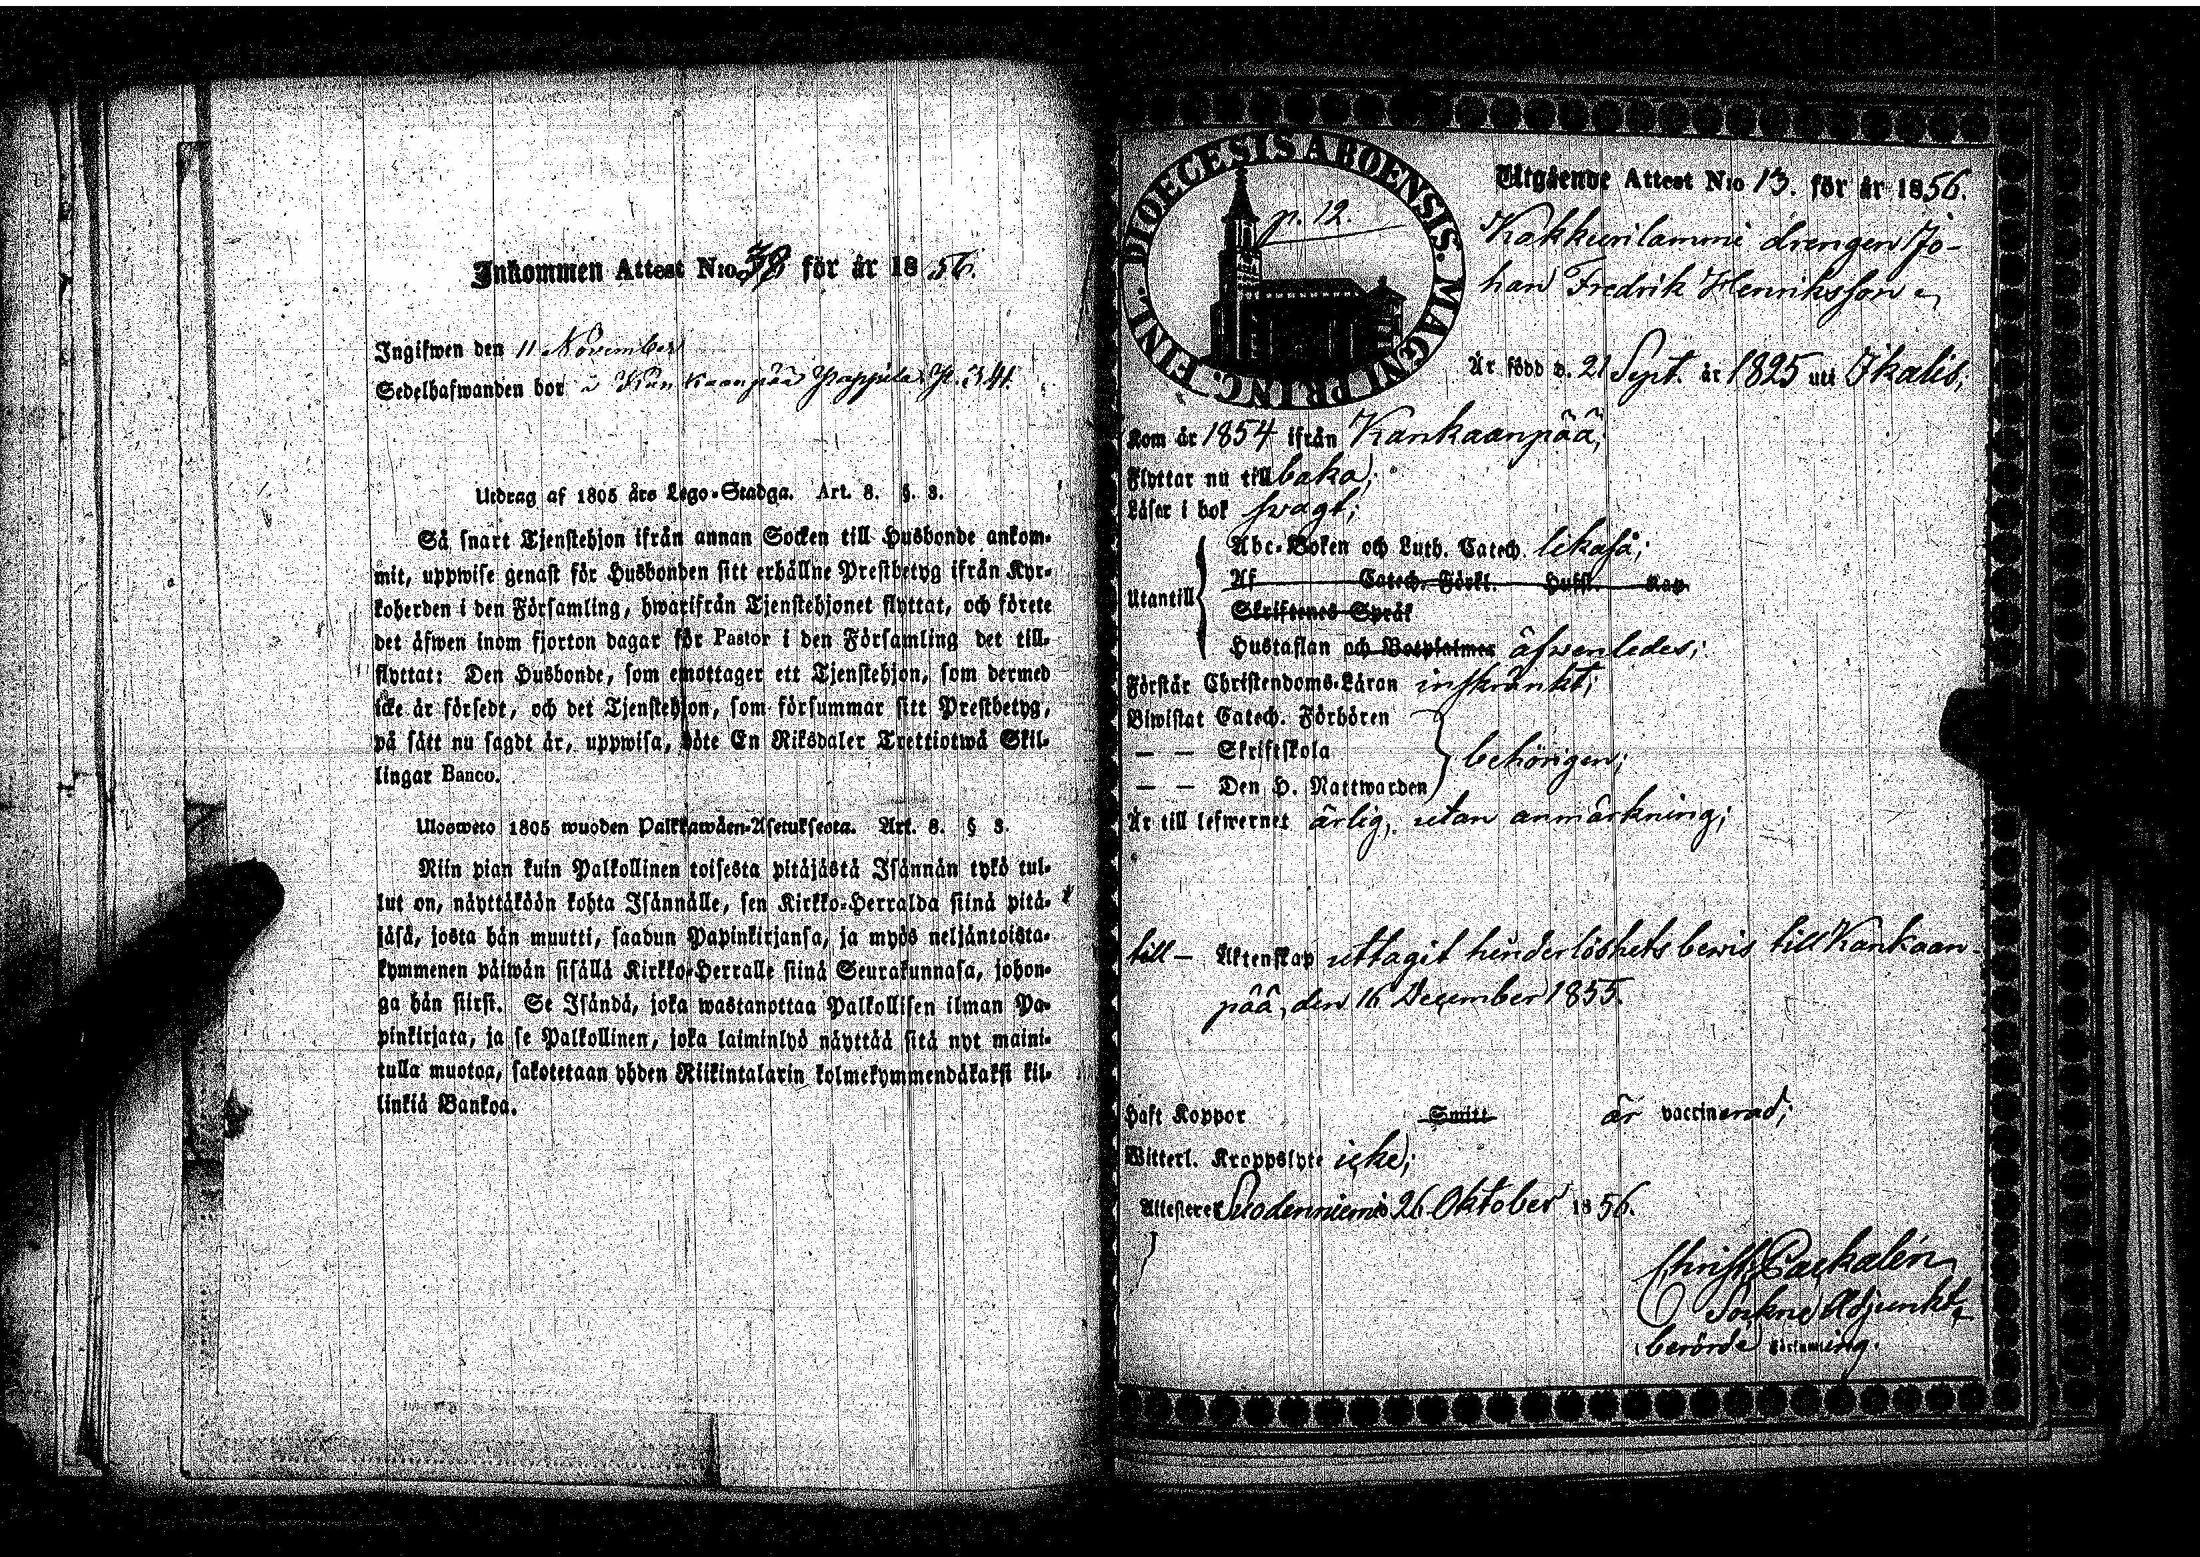 Inkommen Attest N:o 38 för år 1856.
Ingifwen den 11 November
Sedelhafwanden bor i Kankaanpää Pappila P. 341.
Utdrag af 1805 års Lego-Stadga. Art. 8. §. 3.
Så snart Tjenstehjon ifrån annan Socken till Husbonde ankom-
mit, uppwise genast för Husbonden sitt erhållne Prestbetyg ifrån Kyr-
koherden i den Församling, hwarifrån Tjenstehjonet flyttat, och förete
det äfwen inom fjorton dagar för Pastor i den Församling det till-
flyttat: Den Husbonde, som emottager ett Tjenstehjon, som dermed
icke är försedt, och det Tjenstehjon, som försummar sitt Prestbetyg,
på sätt nu sagdt är, uppwisa, böte En Riksdaler Trettiotwå Skil-
lingar Banco.
Ulosweto 1805 wuoden Palkkawäen-Asetuksesta. Art. 8. § 3.
Niin pian kuin Palkollinen toisesta pitäjästä Isännän tykö tul-
lut on, näyttäköön kohta Isännälle, sen Kirkko-Herralda siinä pitä-
jäsä, josta hän muutti, saadun Papinkirjansa, ja myös neljäntoista-
kymmenen päiwän sisällä Kirkko-Herralle siinä Seurakunnasa, johon-
ga hän siirst. Se Isändä, joka wastanottaa Palkollisen ilman Pa-
pinkirjata, ja se Palkollinen, joka laiminlyö näyttää sitä nyt maini-
tulla muotoa, sakotetaan yhden Riikintalarin kolmekymmendäkaksi kil-
linkiä Bankoa.
DIOECESIS ABOENSIS. MAGNI PRINC. FINL.
p. 12.
Utgående Attest N:o 13. för år 1856.
drengen Jo-
han Fredrik Henriksson
Är född d. 21 Sept. år 1825 uti Ikalis,
Kom år 1854 ifrån Kankaanpää,
Flyttar nu tillbaka;
Läser i bok swagt;
Utantill
Abc-Boken och Luth. Catech. lekaså;
Af Catech. Förkl. Hufst. Kap.
Skriftenes Språk
Hustaflan och Botpsalmer äfwenledes;
Förstår Christendoms-Läran inskränkt;
Biwistat Catech. Förhören
— — Skriftskola
behörigen;
— — Den H. Nattwarden
Är till lefwernet ärlig, utan anmärkning;
till — Äktenskap uttagit hinderlöshets bewis till Kankaan-
pää, den 16 December 1855.
Haft Koppor Smitt är vaccinerad;
Witterl. Kroppslyte icke;
Attesterer Suodenniemi 26 Oktober 1856.
Christ. Packalén
Sockne Adjunkt i
berörde Församling.